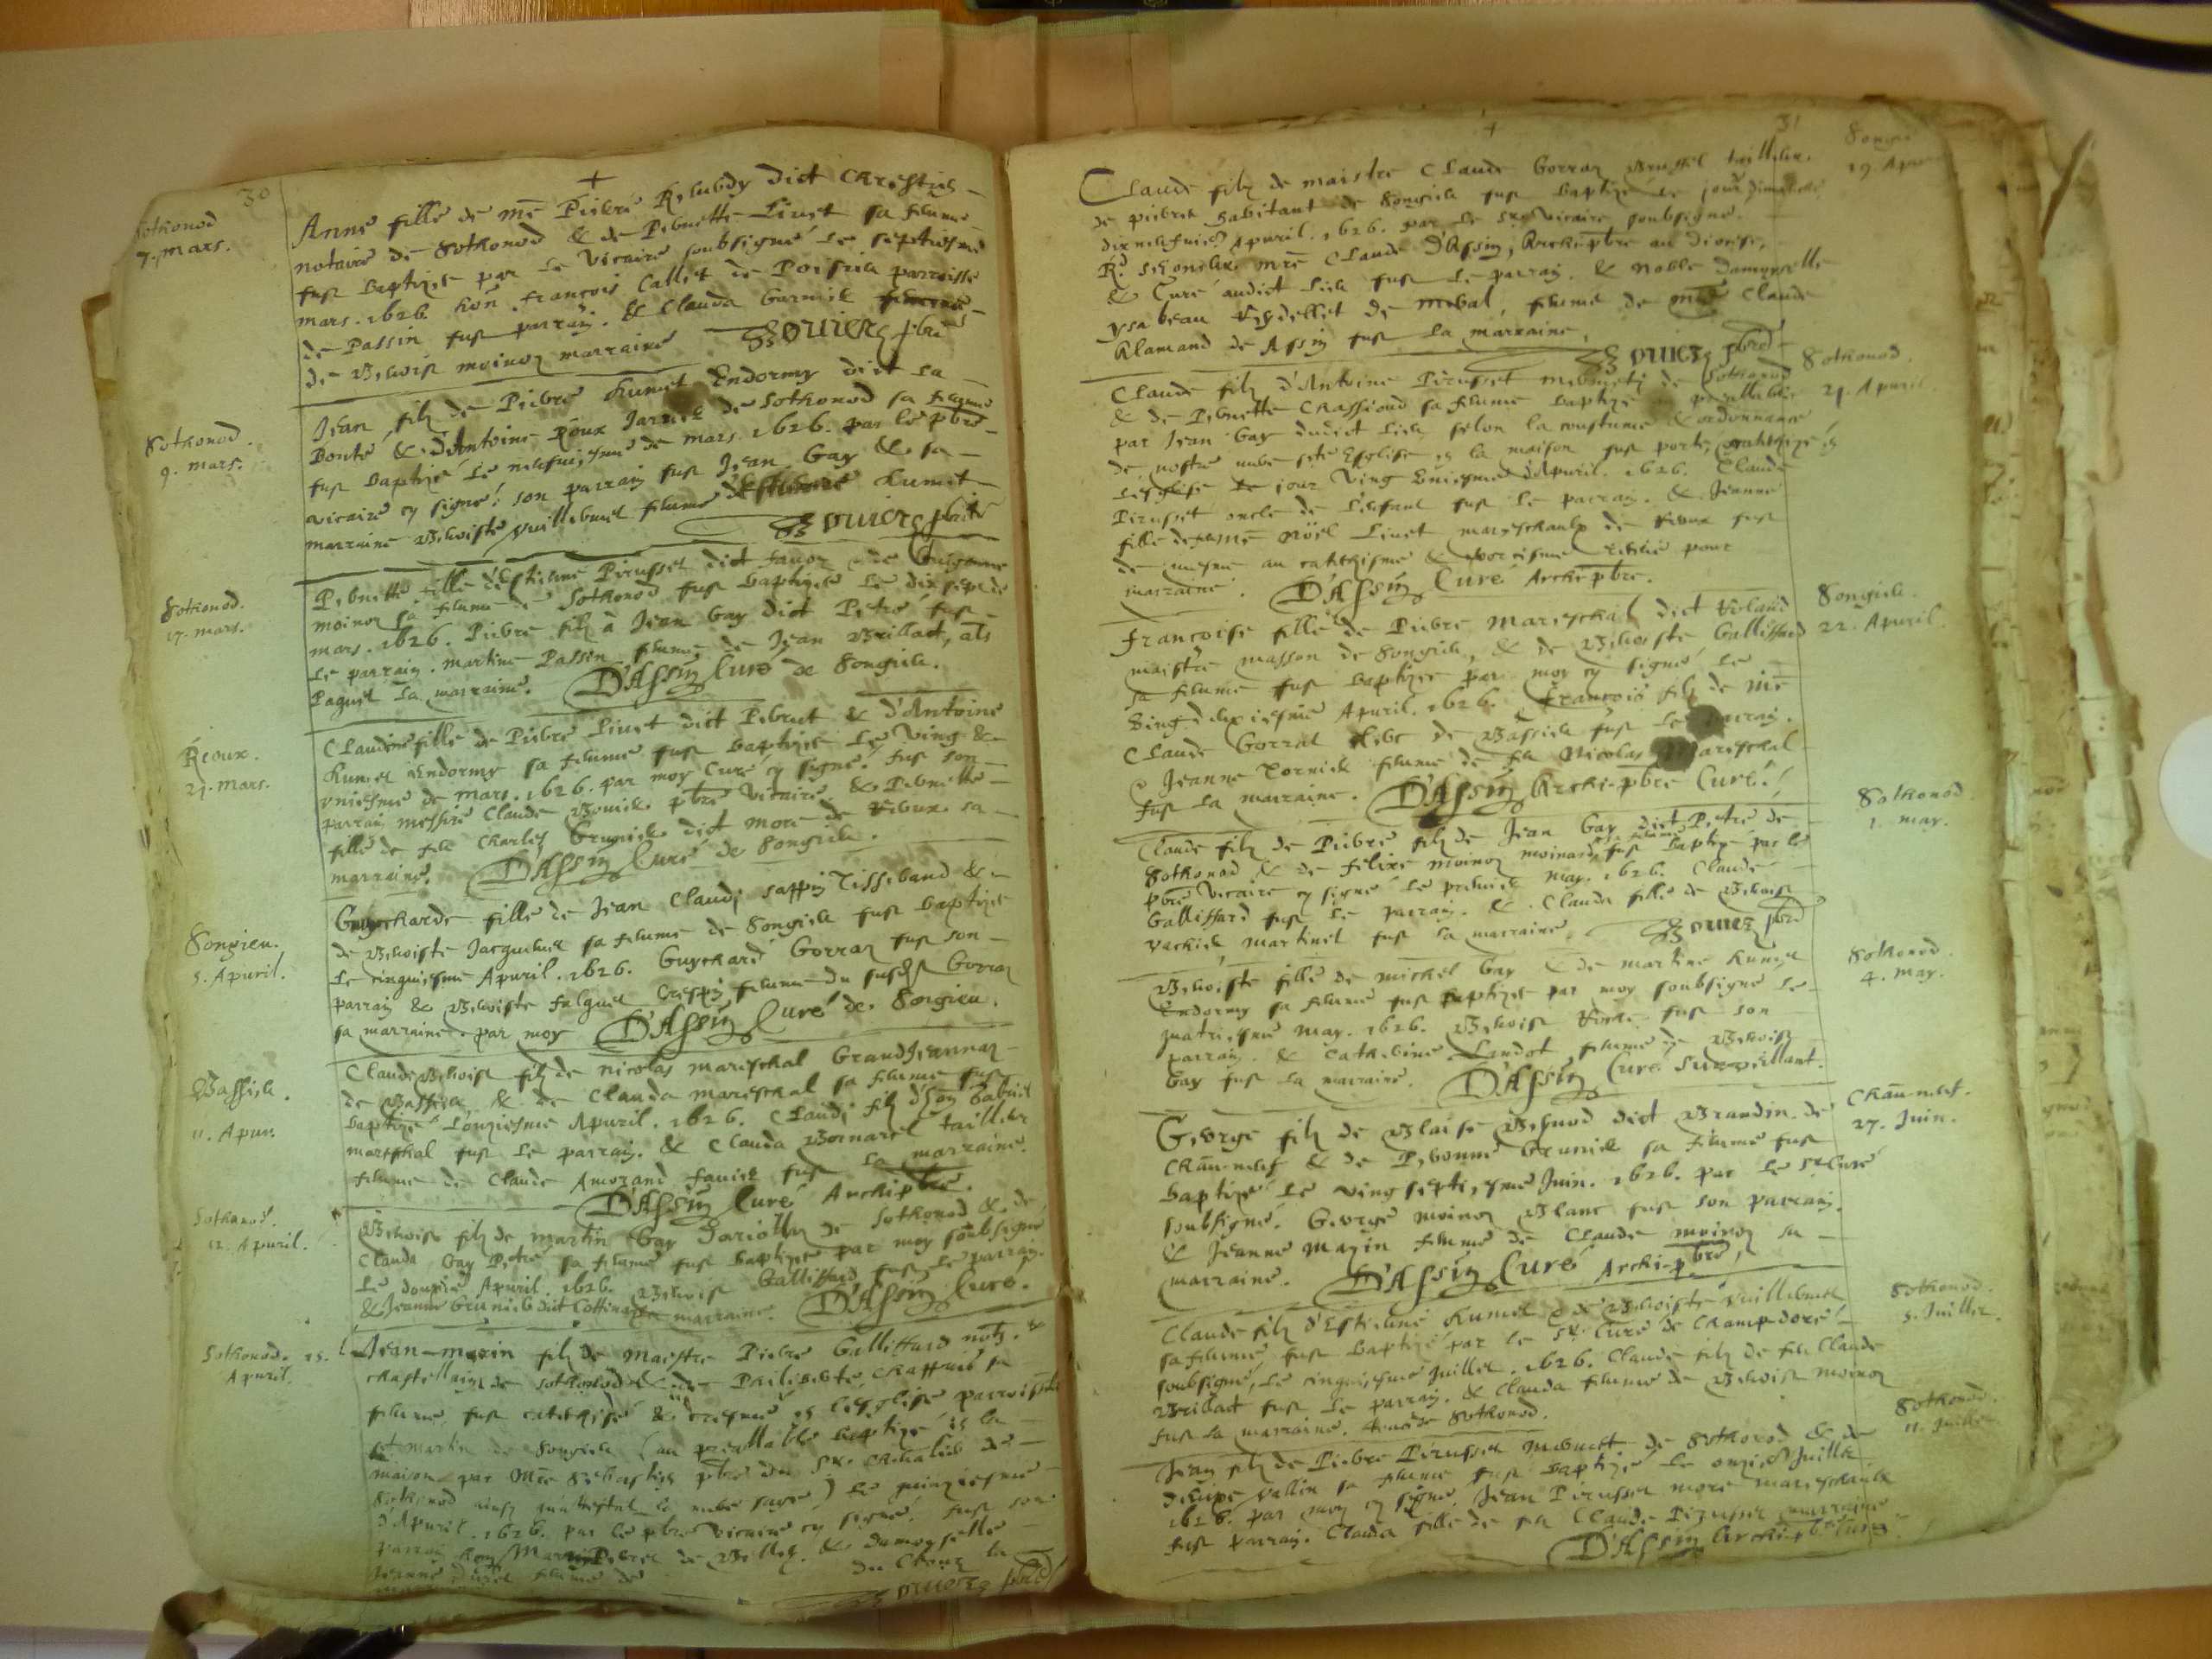 30
+
Sothonod
7. mars.
Anne fille de me Pierre dict Chrestien
notaire de Sothonod & de Pernette Livet sa femme
fust baptizee par le vicaire soubsigné le septiesme
mars. 1626. hon. françois Callet de Poisieu parroisse
de Passin fust parrain. & Clauda Garnier
de Benoist moinon marraine Bouier pbre
Sothonod.
9. mars.
Jean filz de Pierre Humet Endormy dict la
Bonté & d'Antoine Roux Jarrier de Sothonod sa femme
fust baptizé le neufuiesme de mars. 1626. par le pbre
vicaire cy signé. son parrain fust Jean Gay & sa
marraine Benoiste Vuillermet femme d'Estienne Humet
Bouier pbre
Sothonod.
17. mars.
Pernette fille d'Estienne Pirusset dict fauoz & de Guigonne
moinon sa femme de Sothonod fust baptizee le dixsept de
mars. 1626. Pierre filz à Jean Gay dict Petré fust
le parrain. martine Passin femme de Jean Brillat, als
Paguet la marraine. D'Assin Curé de Songieu.
Reoux.
21. Mars.
Claudine fille de Pierre Livet dict Pebrut & d'Antoine
Humet Endormy sa femme fust baptizee le ving &
vniesme de mars. 1626. par moy Curé cy signé. fust son
parrain messire Claude Bouier pbre Vicaire & Pernette
fille de feu Charles Grunier dict more de Reoux sa
marraine. D'Assin Curé de Songieu.
Songieu.
5. Apuril.
Guycharde fille de Jean Claude sappin Tisseband &
de Benoiste Jacquemet sa femme de Songieu fust baptizee
le cinquiesme Apuril. 1626. Guychard Gorraz fust son
parrain & Benoiste falquet Crespin femme du susdit Gorraz
sa marraine. par moy D'Assin Curé de Songieu.
Bassieu.
11. Apur.
Claude Benoist filz de nicolas mareschal GrandJeannaz
de Bassieu & de Clauda mareschal sa femme fust
baptizé l'onziesme Apuril. 1626. Claude filz d'hon. Gabriel
mareschal fust le parrain. & Clauda Bornarel tailleur
femme de Claude Amorand fauier fust la marraine.
D'Assin Curé Archipbre.
Sothonod.
12. Apuril.
Benoist filz de martin Gay Dariollaz de Sothonod & de
Clauda Gay Petré sa femme fust baptizee par moy soubsigné
le douzie. Apuril. 1626. Benoist Galliffard fust le parrain.
& Jeanne Grunier dict Cottin marraine. D'Assin Curé.
Sothonod. 15.
Apuril.
Jean-marin filz de Maistre Pierre Galliffard notz. &
chastellain de Sothonod & de Philiberte Chaffard sa
femme fust catechisé & cresmé en l'esglise parroissi
St martin de Songieu (au preallable baptizé en la
maison par Mre Sebastien pbre du Sr. Cheualier de
Sothonod ainsi la mere sage) le quinziesme
d'Apuril. 1626. par le pbre vicaire cy signé. fust son
parrain hon. Marin de Billes. & damoyselle
Jeanne femme de du Clouz la
Bouier pbre
31
+
Songieu
19. Apur
Claude filz de maistre Claude Gorraz Brussel tailleur
de pierres habitant de Songieu fust baptizé le jour dimenche
dixneufuies. Apuril. 1626. par le Sr. Vicaire soubsigné.
Rd. seigneur mre Claude D'Assin, Archipbre au diocese,
& Curé audict lieu fust le parrain. & Noble damoyselle
ysabeau de Mebal, femme de mre Claude
Alamand de Assin fust la marraine,
Bouier pbre
Sothonod.
21. Apuril
Claude filz d'Antoine Pirusset mermetz de Sothonod
& de Pernette Chassioud sa femme baptizé au preallable
par Jean Gay dudict lieu selon la coustume & ordonnance
de nostre mere ste Esglise en la maison fust porté catechizé en
l'esglise le jour Ving Vniesme d'Apuril. 1626. Claude
Pirusset oncle de l'enfant fust le parrain. & Jeanne
fille de feu me Noël Livet mareschaulx de Reoux fust
de mesme au catechisme & exorcisme tenue pour
marraine. D'Assin Curé Archipbre.
Songieu.
22. Apuril.
françoise fille de Pierre Mareschal dict Roland
maistre masson de Songieu, & de Benoiste Galliffard
sa femme fust baptizee par moy cy signé le
Ving deuxiesme Apuril. 1626. françois filz de me
Claude Gorral de Bassieu fust le parrain.
& Jeanne Tornier femme de feu Nicolas Mareschal
fust la marraine. D'Assin Archi-pbre Curé.
Sothonod.
1. may.
Claude filz de Pierre filz de Jean Gay dict Petré de
Sothonod & de felize moinon moinard femme fust baptizé par le
pbre vicaire cy signé le premier may. 1626. Claude
Galliffard fust le parrain. & Clauda fille de Benoist
Vachier martinet fust la marraine. Bouier pbre
Sothonod.
4. may.
Benoiste fille de michel Gay & de martine Humet
Endormy sa femme fust baptizee par moy soubsigné le
quatriesme may. 1626. Benoist fust son
parrain. & Catherine Landot femme de Benoist
Gay fust la marraine. D'Assin Curé Surveillant.
Chau-neuf.
27. Juin.
George filz de Blaise Besnod dict Brandin de
Chau-neuf & de Peronne Grunier sa femme fust
baptizé le ving septiesme Juin. 1626. par le Sr Curé
soubsigné. George moinon Blanc fust son parrain.
& Jeanne Mazin femme de Claude moinon sa
marraine. D'Assin Curé Archi-pbre,
Sothonod.
5. Juillet.
Claude filz d'Estienne Humet & de Benoiste Vuillermet
sa femme, fust baptizé par le Sr. Curé de Champ-doré
soubsigné, le cinquiesme Juillet. 1626. Claude filz de feu Claude
Brillat fust le parrain. & Clauda femme de Benoist Moinon
fust la marraine. de Sothonod.
Sothonod.
11. Juillet
Jean filz de Pierre Pirusset Mermett de Sothonod & de
Vallin sa femme fust baptizé le onzies. Juillet
1626. par moy cy signé. Jean Pirusset more mareschault
fust parrain. Clauda fille de feu Claude Pirusset marraine
D'Assin Archipbre Curé